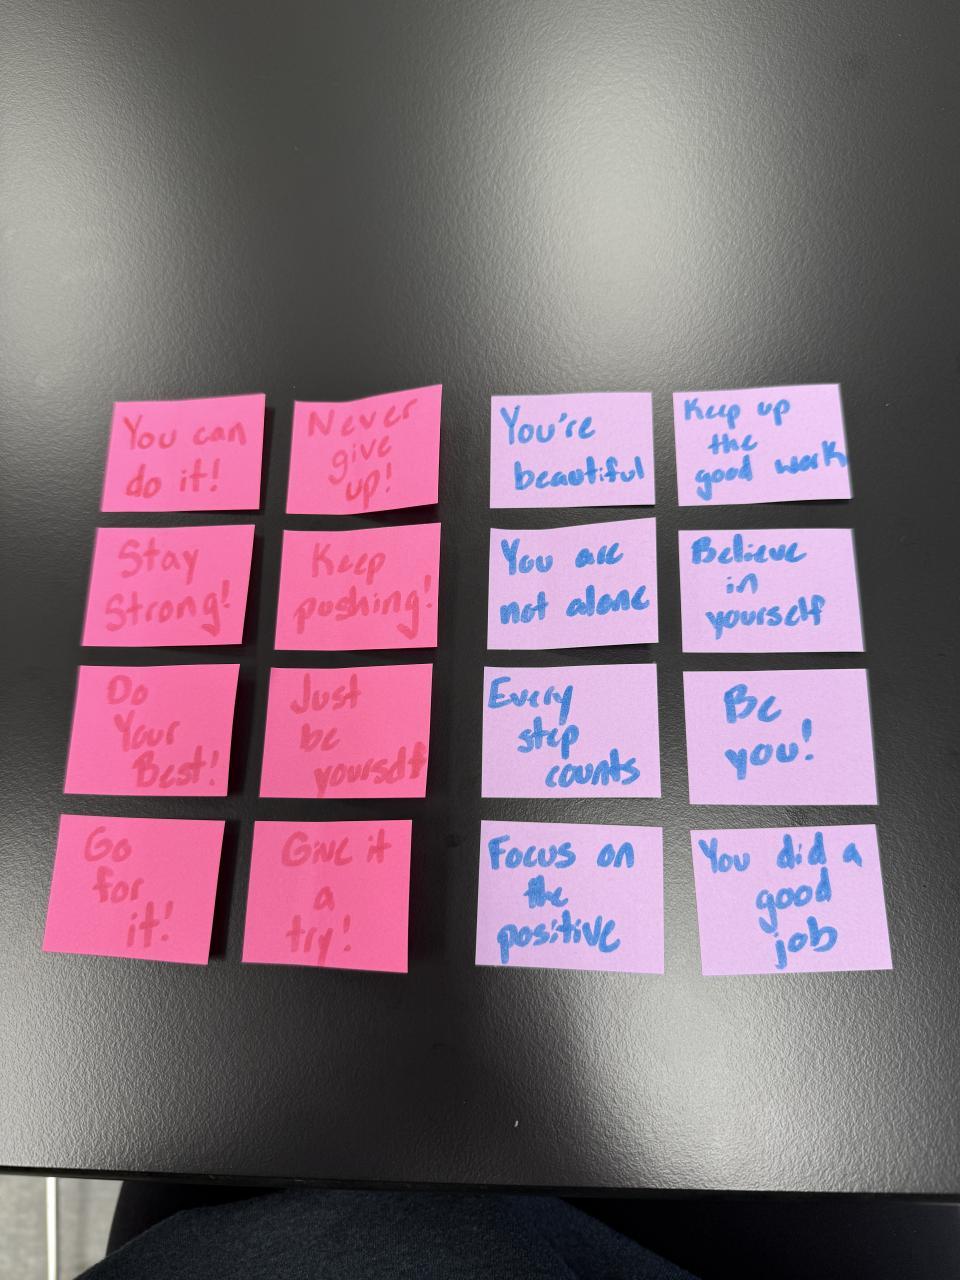 You can
do it!
Never
give
up!
You're
beautiful
Keep up
the
good work
Stay
Strong!
Keep
pushing!
You are
not alone
Believe
in
yourself
Do
Your
Best!
Just
be
yourself
Every
step
counts
Be
you!
Go
for
it!
Give it
a
try!
Focus on
the
positive
You did a
good
job